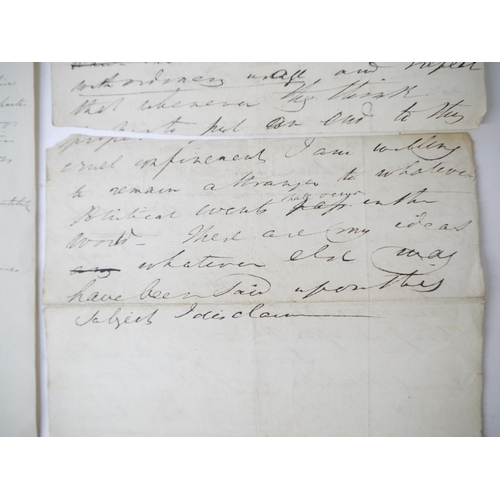 with ordinary usage, and repeat
that whenever they think
proper to put an end to this
cruel confinement I am willing
to remain a stranger to whatever
Political events may occur in the
World - These are my ideas
whatever else may
have been said upon this
Subject I disclaim